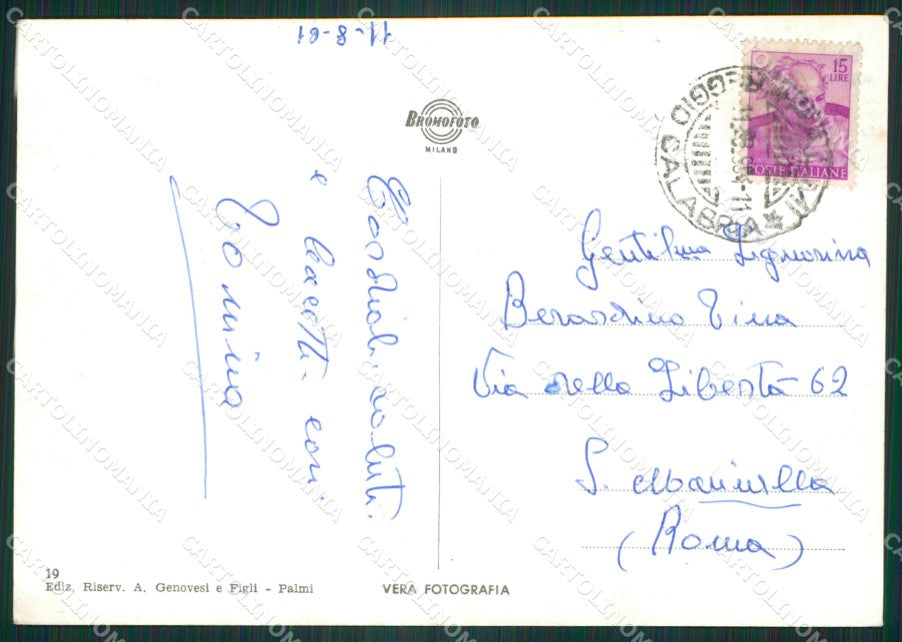 11-8-61
15
LIRE
POSTE ITALIANE
REGGIO CALABRIA
BROMOFOTO
MILANO
Cordiali saluti
e bacetti cari
Romina
Gentil.ma Signorina
Berardino Tina
Via della Libertà 62
S. Marinella
(Roma)
19
Ediz. Riserv. A. Genovesi e Figli - Palmi
VERA FOTOGRAFIA
CARTOLINOMANIA